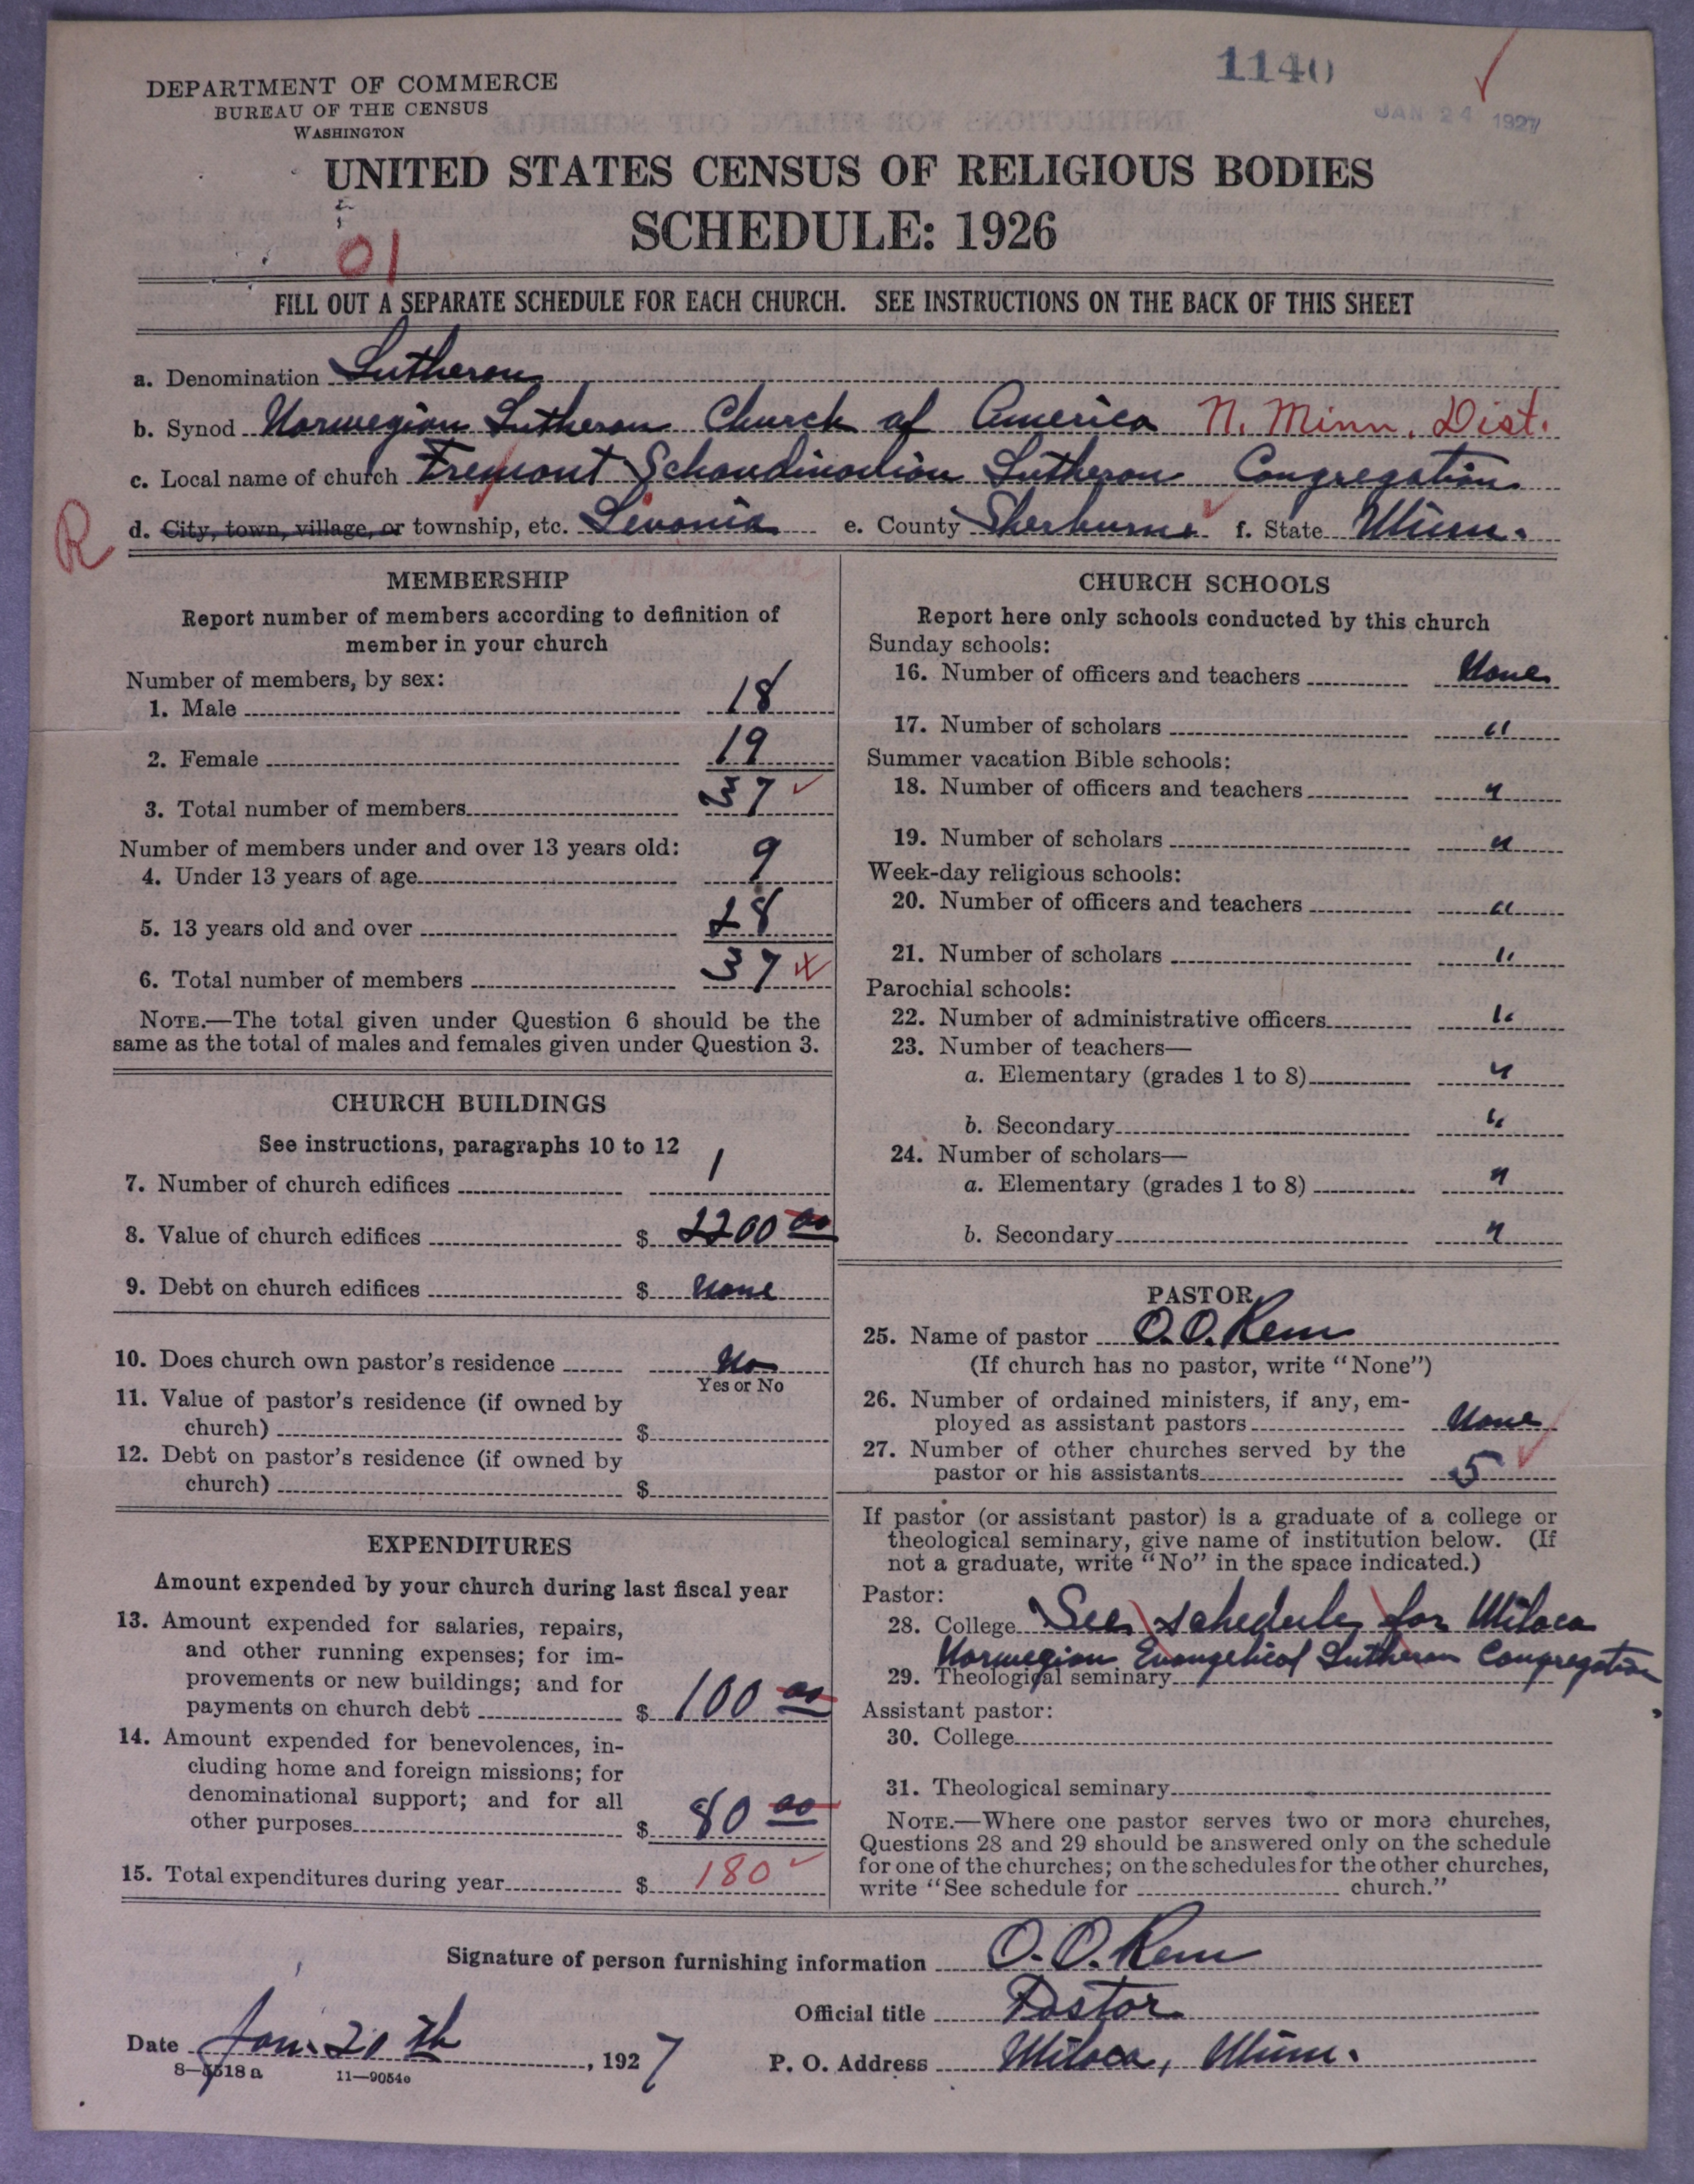 1140
JAN 24 1927
DEPARTMENT OF COMMERCE
BUREAU OF THE CENSUS
WASHINGTON
UNITED STATES CENSUS OF RELIGIOUS BODIES
SCHEDULE: 1926
01
FILL OUT A SEPARATE SCHEDULE FOR EACH CHURCH. SEE INSTRUCTIONS ON THE BACK OF THIS SHEET
a. Denomination Lutheran
b. Synod Norwegian Lutheran Church of America N. Minn. Dist.
c. Local name of church Fremont Schandinavian Lutheran Congregation
R
d. City, town, village, or township, etc. Livonia e. County Sherburne f. State Minn.
MEMBERSHIP
Report number of members according to definition of
member in your church
Number of members, by sex:
1. Male 18
2. Female 19
3. Total number of members 37
Number of members under and over 13 years old:
4. Under 13 years of age 9
5. 13 years old and over 28
6. Total number of members 37
NOTE.—The total given under Question 6 should be the
same as the total of males and females given under Question 3.
CHURCH BUILDINGS
See instructions, paragraphs 10 to 12
7. Number of church edifices 1
8. Value of church edifices $ 2200 00
9. Debt on church edifices $ None
10. Does church own pastor's residence No
Yes or No
11. Value of pastor's residence (if owned by
church) $
12. Debt on pastor's residence (if owned by
church) $
EXPENDITURES
Amount expended by your church during last fiscal year
13. Amount expended for salaries, repairs,
and other running expenses; for im-
provements or new buildings; and for
payments on church debt $ 100 00
14. Amount expended for benevolences, in-
cluding home and foreign missions; for
denominational support; and for all
other purposes $ 80 00
15. Total expenditures during year $ 180
CHURCH SCHOOLS
Report here only schools conducted by this church
Sunday schools:
16. Number of officers and teachers None
17. Number of scholars "
Summer vacation Bible schools:
18. Number of officers and teachers "
19. Number of scholars "
Week-day religious schools:
20. Number of officers and teachers "
21. Number of scholars "
Parochial schools:
22. Number of administrative officers "
23. Number of teachers—
a. Elementary (grades 1 to 8) "
b. Secondary "
24. Number of scholars—
a. Elementary (grades 1 to 8) "
b. Secondary "
PASTOR
25. Name of pastor O. O. Rem
(If church has no pastor, write "None")
26. Number of ordained ministers, if any, em-
ployed as assistant pastors None
27. Number of other churches served by the
pastor or his assistants 5
If pastor (or assistant pastor) is a graduate of a college or
theological seminary, give name of institution below. (If
not a graduate, write "No" in the space indicated.)
Pastor:
28. College See schedule for Milaca
Norwegian Evangelical Lutheran Congregation
29. Theological seminary
Assistant pastor:
30. College
31. Theological seminary
NOTE.—Where one pastor serves two or more churches,
Questions 28 and 29 should be answered only on the schedule
for one of the churches; on the schedules for the other churches,
write "See schedule for church."
Signature of person furnishing information O. O. Rem
Official title Pastor
Date Jan. 20 th, 1927
P. O. Address Milaca, Minn.
8—5518 a 11—9054e